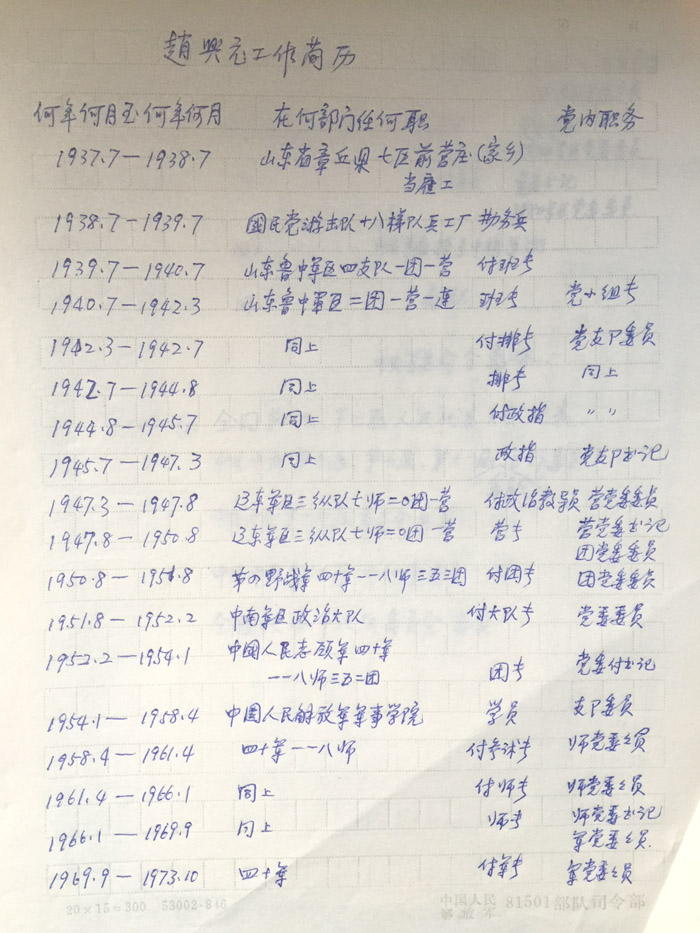 趙興元工作简历
何年何月至何年何月 在何部门任何职 党内职务
1937.7—1938.7 山东省章丘県七区前营庄(家乡)
当雇工
1938.7—1939.7 國民党游击队十八梯队兵工厂 勤务兵
1939.7—1940.7 山东鲁中军区四支队一团一营 付班长
1940.7—1942.3 山东鲁中军区二团一营一連 班长 党小组长
1942.3—1942.7 同上 付排长 党支卩委员
1942.7—1944.8 同上 排长 同上
1944.8—1945.7 同上 付政指 〃〃
1945.7—1947.3 同上 政指 党支卩书记
1947.3—1947.8 辽东军区三纵队七师二0团一营 付政治教导员 营党委委员
1947.8—1950.8 辽东军区三纵队七师二0团一营 营长 营党委书记
团党委委员
1950.8—1951.8 第四野战军四十军一一八师三五三团 付团长 团党委委员
1951.8—1952.2 中南军区政治大队 付大队长 党委委员
1952.2—1954.1 中國人民志願军四十军
一一八师三五二团 团长 党委付书记
1954.1—1958.4 中國人民解放军军事学院 学员 支卩委员
1958.4—1961.4 四十军一一八师 付参谋长 师党委委员
1961.4—1966.1 同上 付师长 师党委委员
1966.1—1969.9 同上 师长 师党委书记
军党委委员
1969.9—1973.10 四十军 付军长 军党委委员
20×15=300 53002·846 中国人民解放军 81501部队司令部